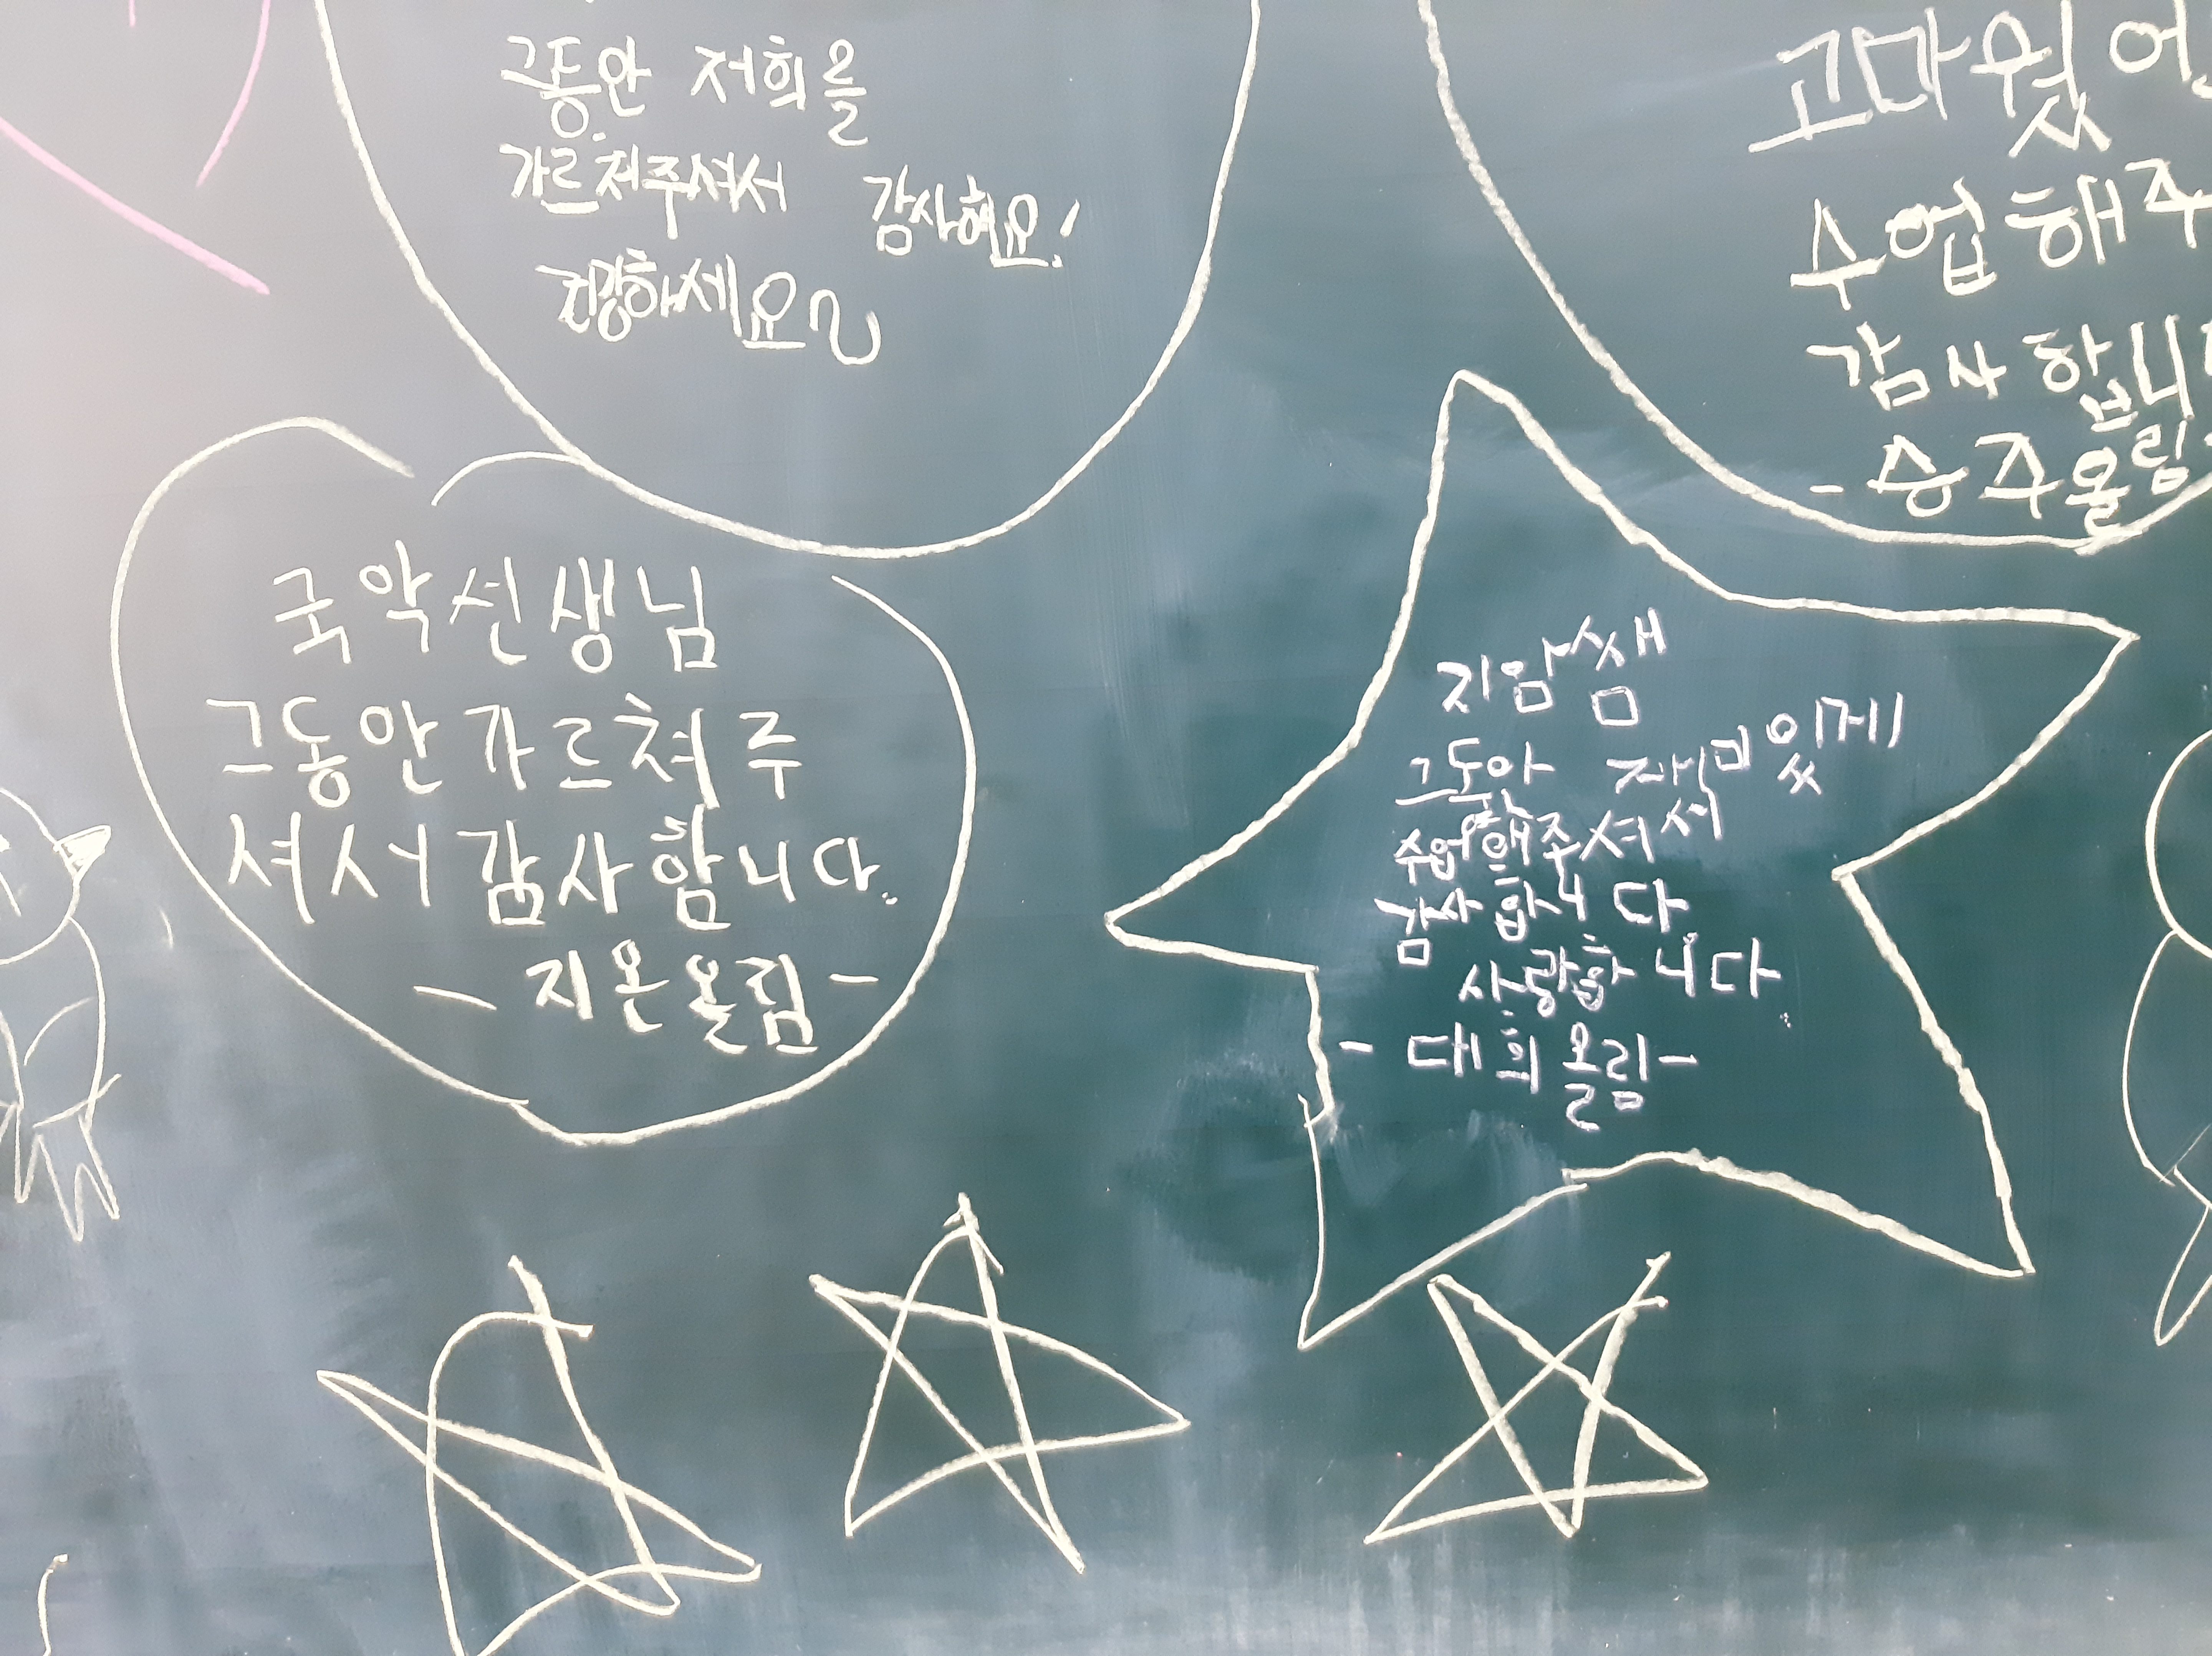 그동안 저희를
가르쳐주셔서 감사해요!
건강하세요
고마웠어
수업해주
감사합니
-승주올림-
국악선생님
그동안가르쳐주
셔서감사합니다.
- 지온올림 -
지암쌤
그동안 재미있게
수업해주셔서
감사합니다.
사랑합니다.
- 대희올림-